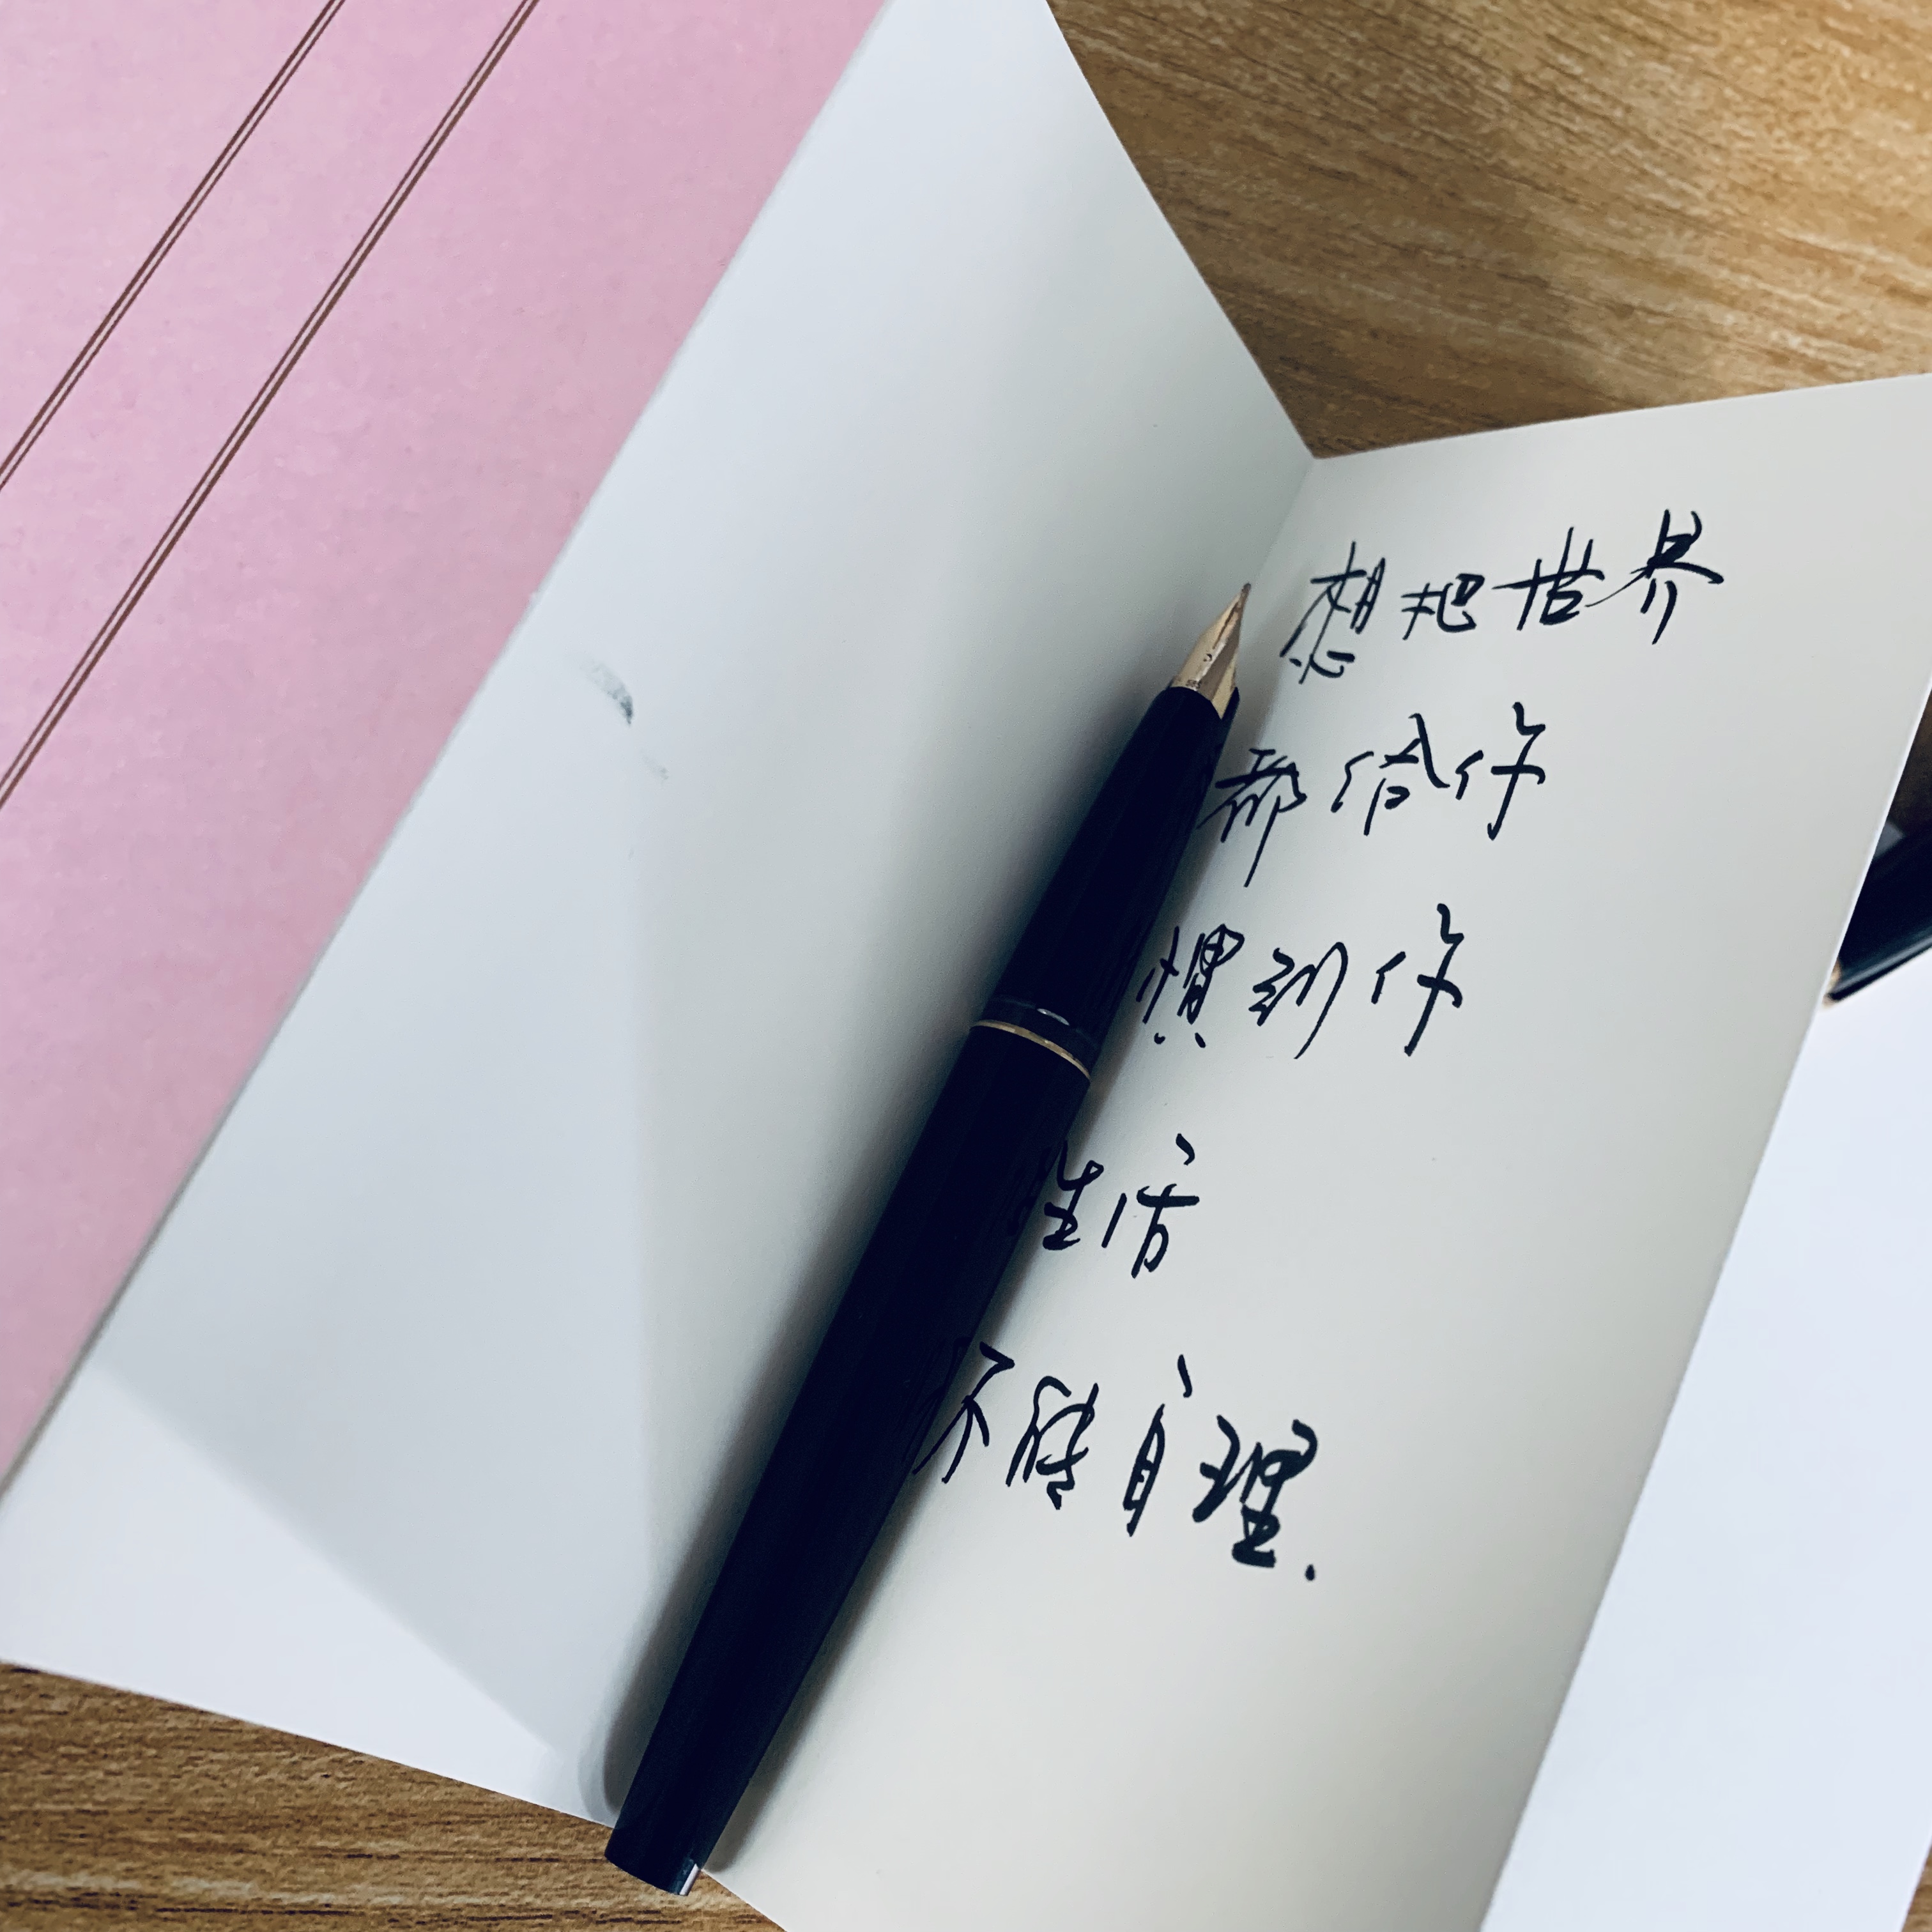 想把世界
都给你
惯到你
生活
不能自理.